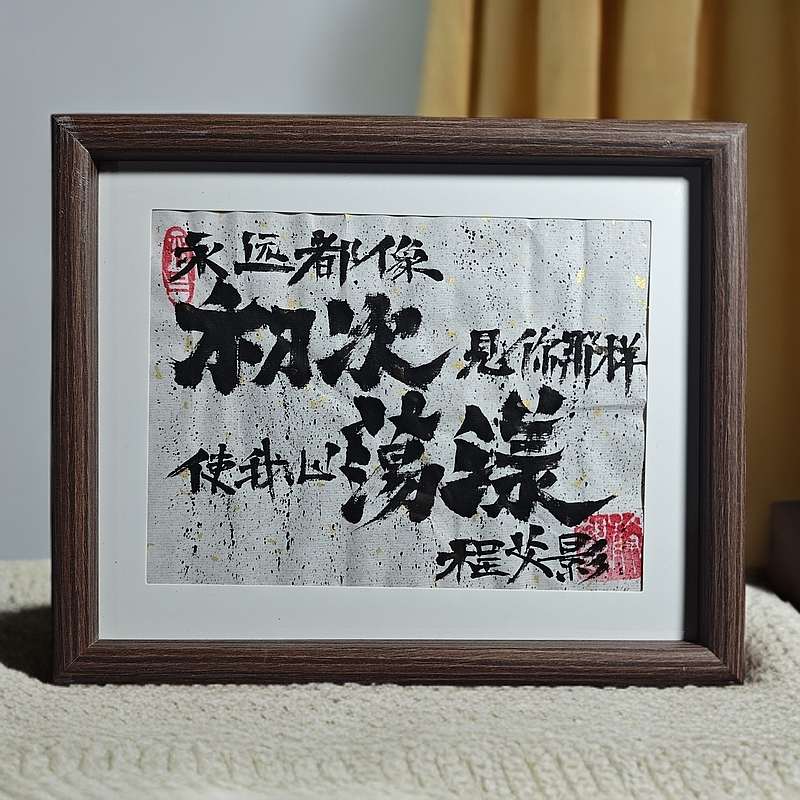 永远都像
初次见你那样
使我心荡漾
程英影